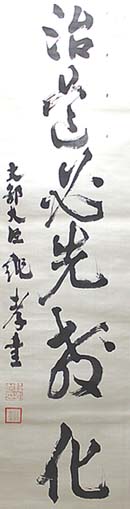 治道必先教化
文部大臣龍孝書